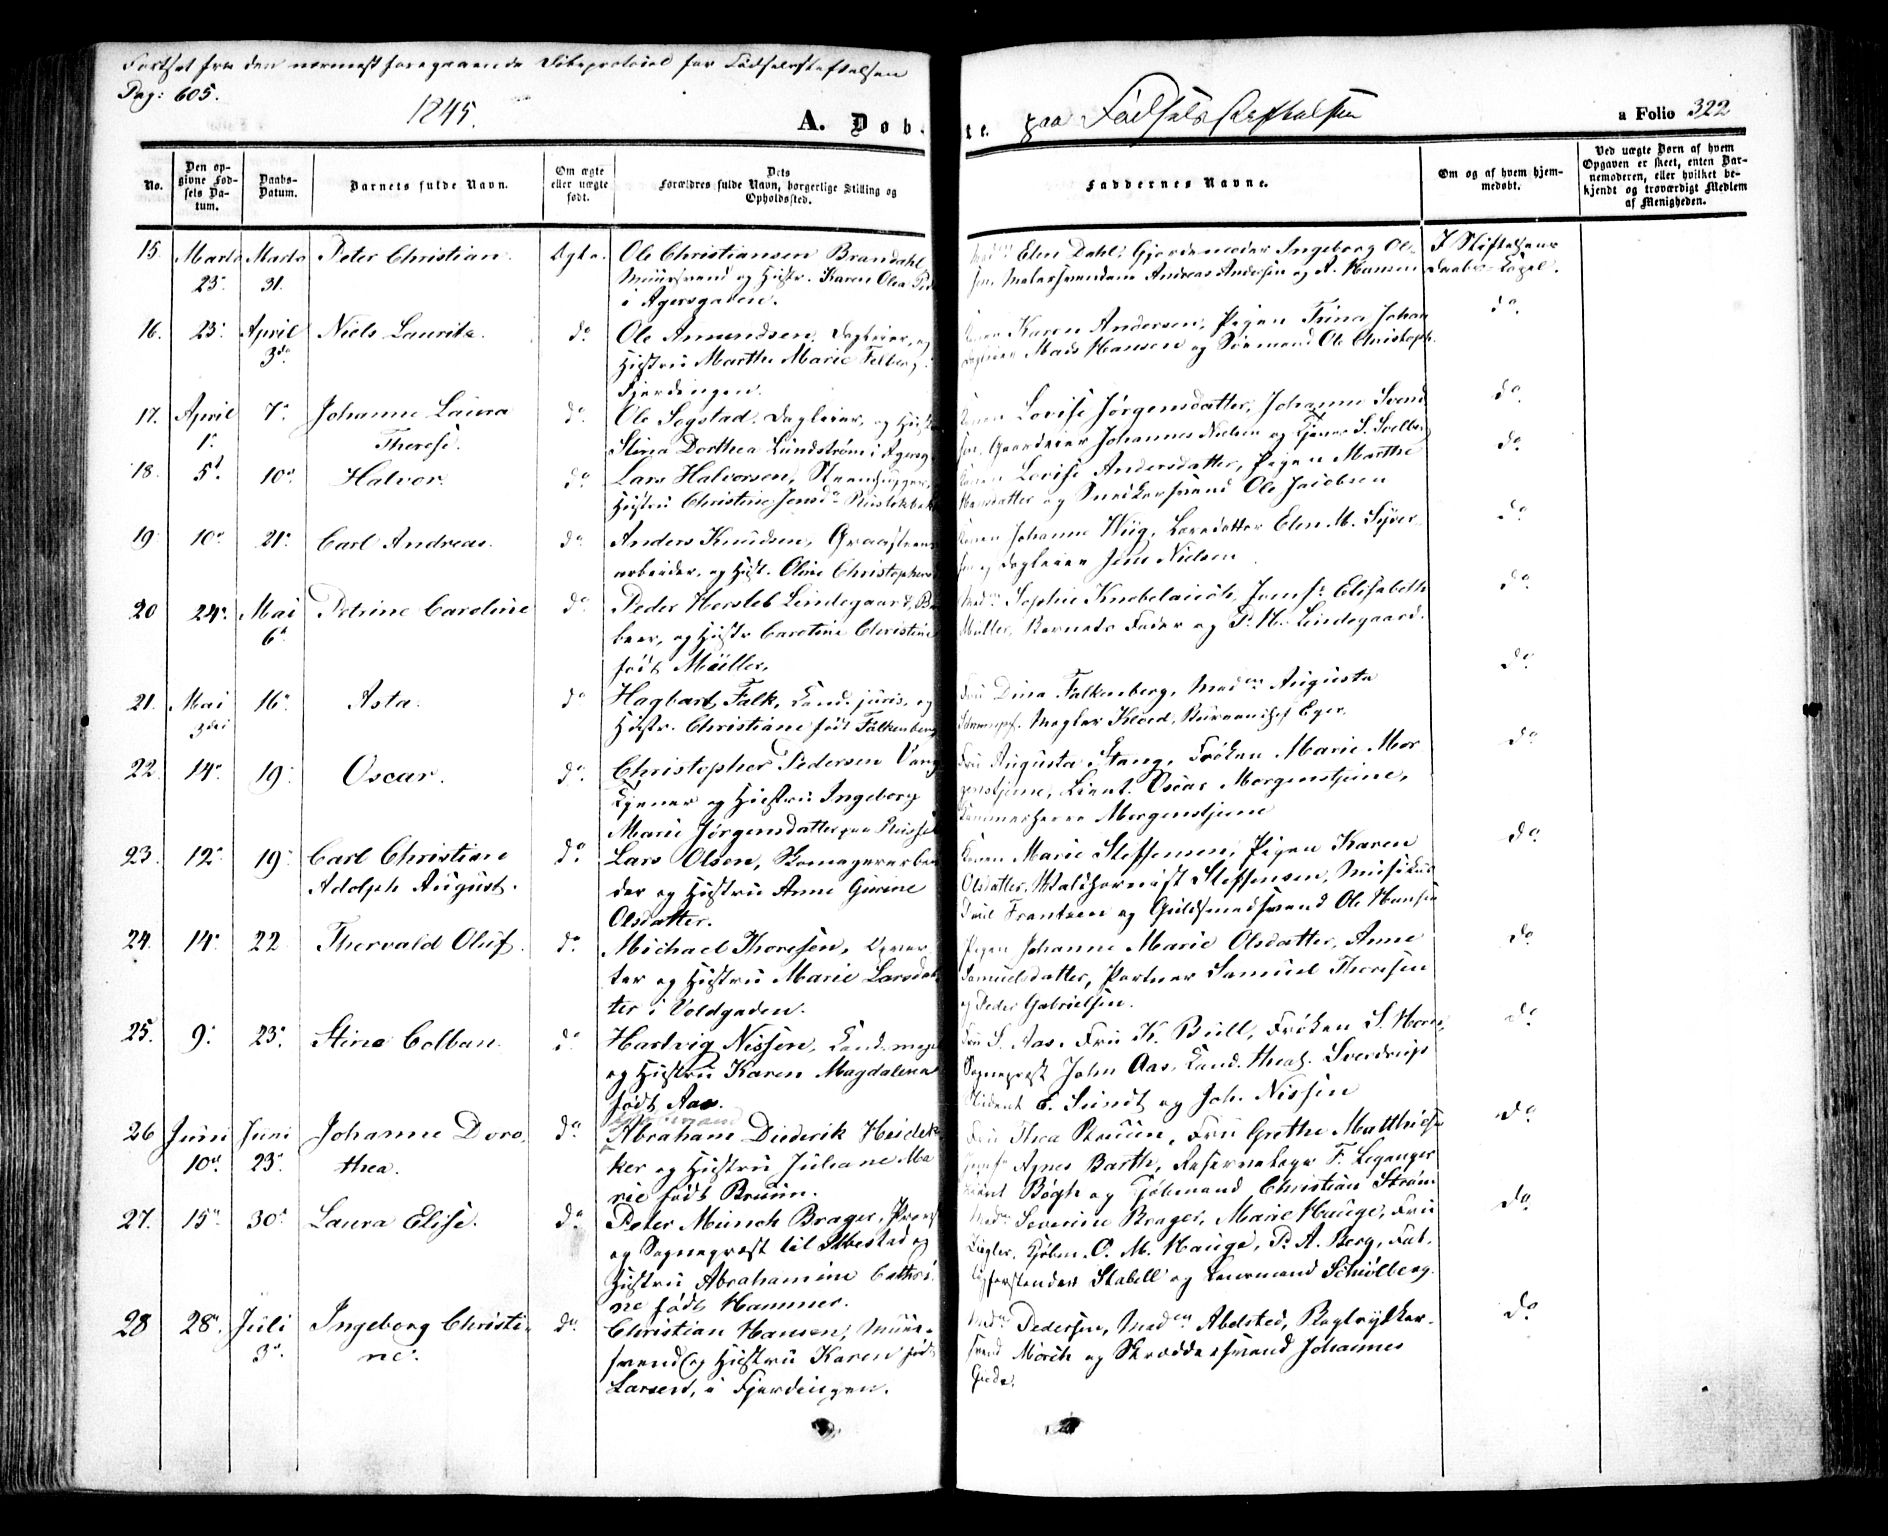 Fortsat fra den nærmest foregaaende Døbeprotocol for Fødselsstiftelsen
Pag: 605.
1845.
A. Døb-
te. paa Fødselsstiftelsen
a Folio 322
No.
Den opgivne Fødsels Datum.
Daabs-Datum.
Barnets fulde Navn.
Om ægte eller uægte født.
Dets Forældres fulde Navn, borgerlige Stilling og Opholdssted.
Faddernes Navne.
Om og af hvem hjemmedøbt.
Ved uægte Børn af hvem Opgaven er skeet, enten Barnemoderen, eller hvilket bekjendt og troværdigt Medlem af Menigheden.
15. Marts 23. Marts 31. Peter Christian. Ægte. Ole Christiansen Brandahl
Muursvend og Hustr. Karen Olea
i Agersgaden.
Elen Dahl, Gjordemoder Ingeborg Ol-
sen, Malersvendene Andreas Andersen og A. Hansen
I Stiftelsens
Daabs-Capel.
16. 23. April 3die Niels Lauritz. do Ole Amundsen, Dagleier, og
Hustru Marthe Marie Felberg
Fjerdingen.
Karen Andersen, Pigen Trina Johan
Mads Hansen og Sømand Ole Christoph.
do
17. April 1. 7. Johanne Laura
Therese. do Ole Sogstad, Dagleier, og Hustr
Stina Dorthea Lundstrøm i Agersg
Lovise Jørgensdatter, Johanne Svend
sen, Gaardeier Johannes Nielsen og Tjener S. Solberg
do
18. 5. 10. Halvor. do Lars Halvorsen, Steenhugger,
Hustru Christine Jensd. Ruseløkbak
Lovise Andersdatter, Pigen Marthe
Hansdatter og Snedkersvend Ole Jacobsen
do
19. 10. 21. Carl Andreas. do Anders Knudsen, Graasteens-
arbeider, og Hust. Oline Christophers
Johanne Wiig, Læredatter Elen M. Syver-
sen og Dagleier Jens Nielsen
do
20 24. Mai 6. Petrine Caroline do Peder Hersleb Lindegaard,
og Hustr Caroline Christine
født Müller.
Sophie Knobelauch, Jomfr. Elisabeth
Müller, Barnets Fader og P. H. Lindegaard.
do
21. Mai 3die 16. Asta. do Hagbart Falk, Cand. juris, og
Hustr. Christiane født Falkenberg
Fru Dina Falkenberg, Madm Augusta
Megler Kloed, Bureauchef Eger.
do
22. 14. 19. Oscar. do Christopher Pedersen Vang
Tjener og Hustru Ingeborg
Marie Jørgensdatter paa
Fru Augusta Stang, Frøken Marie Mor
genstjerne, Lieut. Oscar Morgenstjerne,
Kammerherre Morgenstjerne
do
23. 12. 19. Carl Christian
Adolph August. do Lars Olsen, Skomagerarbei
der og Hustru Anne Gurine
Olsdatter.
Marie Steffensen, Pigen Karen
Olsdatter, Waldhornist Steffensen, Musikus
Frantzen og Guldsmedsvend Ole Hansen
do
24. 14. 22 Thorvald Oluf. do Michael Thoresen, Opvar
ter og Hustru Marie Larsdat
ter i Voldgaden.
Pigen Johanne Marie Olsdatter, Anne
Samuelsdatter, Portner Samuel Thoresen
og Peder Gabrielsen.
do
25. 9. 23. Stina Colban. do Hartvig Nissen, Cand. mag
og Hustru Karen Magdalena
født Aas.
Fru S. Aas, Fru K. Bull, Frøken S. Horn,
Sogneprest John Aas, Cand. theol. Sverdrup
Student E. Sundt og Joh. Nissen
do
26 Juni 10. Juni 23. Johanne Doro-
thea. do Abraham Diederik Heidek
ker og Hustru Juliane Ma
rie født Bruun.
Fru Thea Bruun, Fru Grethe Matthiesen
Agnes Barth, Reservelæge F. Leganger
Bøgh og Kjøbmand Christian Strøm
do
27. 15. 30. Laura Elise. do Peter Munch Brager, Provst
og Sogneprest til Ibestad og
Hustru Abrahamine Cathri
ne født Hammer.
Severine Brager, Marie Hauge, Fru
Kjøbm. O. M. Hauge, P. A. Borg, Fat-
tigforstander Stabell og Lensmand Schiølberg.
do
28 28. Juli 3. Ingeborg Christi-
ne. do Christian Hansen, Muur-
svend og Hustru Karen født
Larsen, i Fjerdingen.
Pedersen, Madm Abelsted, Bogtrykker-
svend Morch og Skræddersvend Johannes
Gude.
do